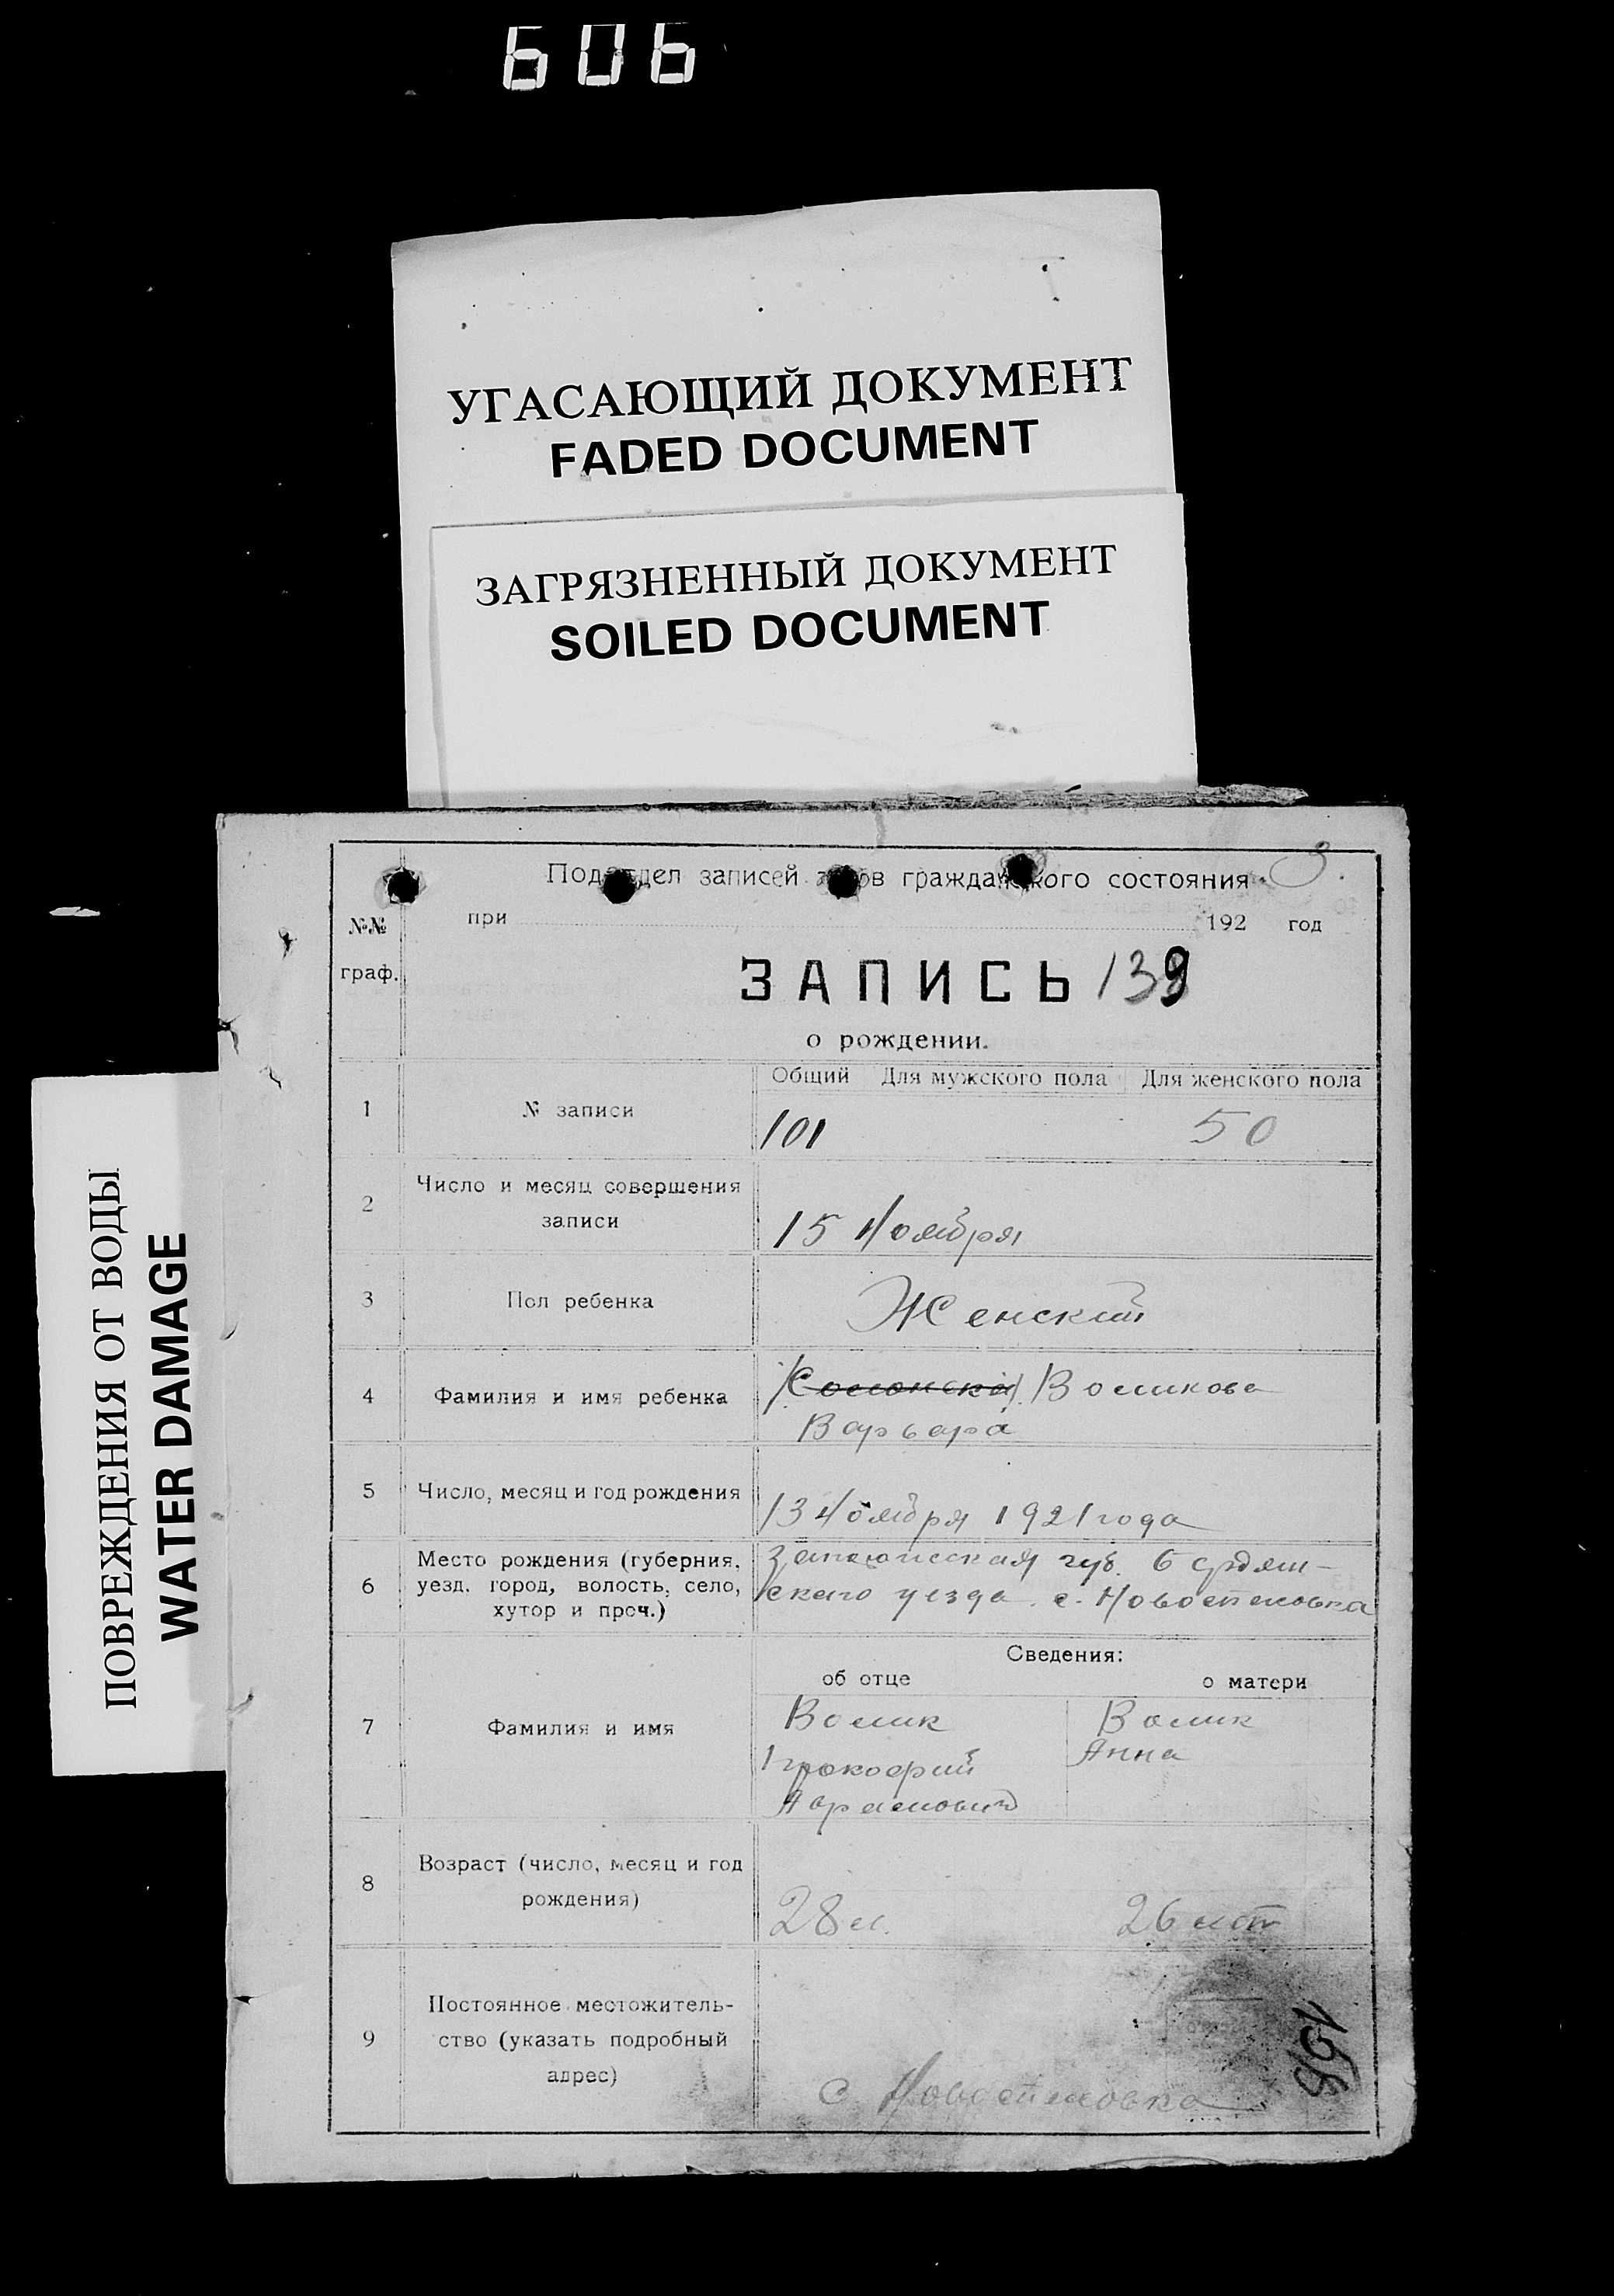 606
УГАСАЮЩИЙ ДОКУМЕНТ
FADED DOCUMENT
ЗАГРЯЗНЕННЫЙ ДОКУМЕНТ
SOILED DOCUMENT
ПОВРЕЖДЕНИЯ ОТ ВОДЫ
WATER DAMAGE
Подотдел записей актов гражданского состояния 3.
№№ граф.
при 192 год
ЗАПИСЬ 139
о рождении.
Общий Для мужского пола Для женского пола
1 № записи 101 50
2 Число и месяц совершения
записи 15 Ноября
3 Пол ребенка Женский
4 Фамилия и имя ребенка Воликова
Варвара
5 Число, месяц и год рождения 13 Ноября 1921 года
6 Место рождения (губерния,
уезд, город, волость, село,
хутор и проч.)
губ. Бердян-
ского уезда с.
Сведения:
об отце о матери
7 Фамилия и имя
Волик Волик
Прокофий Анна
Аврамович
8 Возраст (число, месяц и год
рождения) 28 л. 26 лет
9 Постоянное местожитель-
ство (указать подробный
адрес)
с.